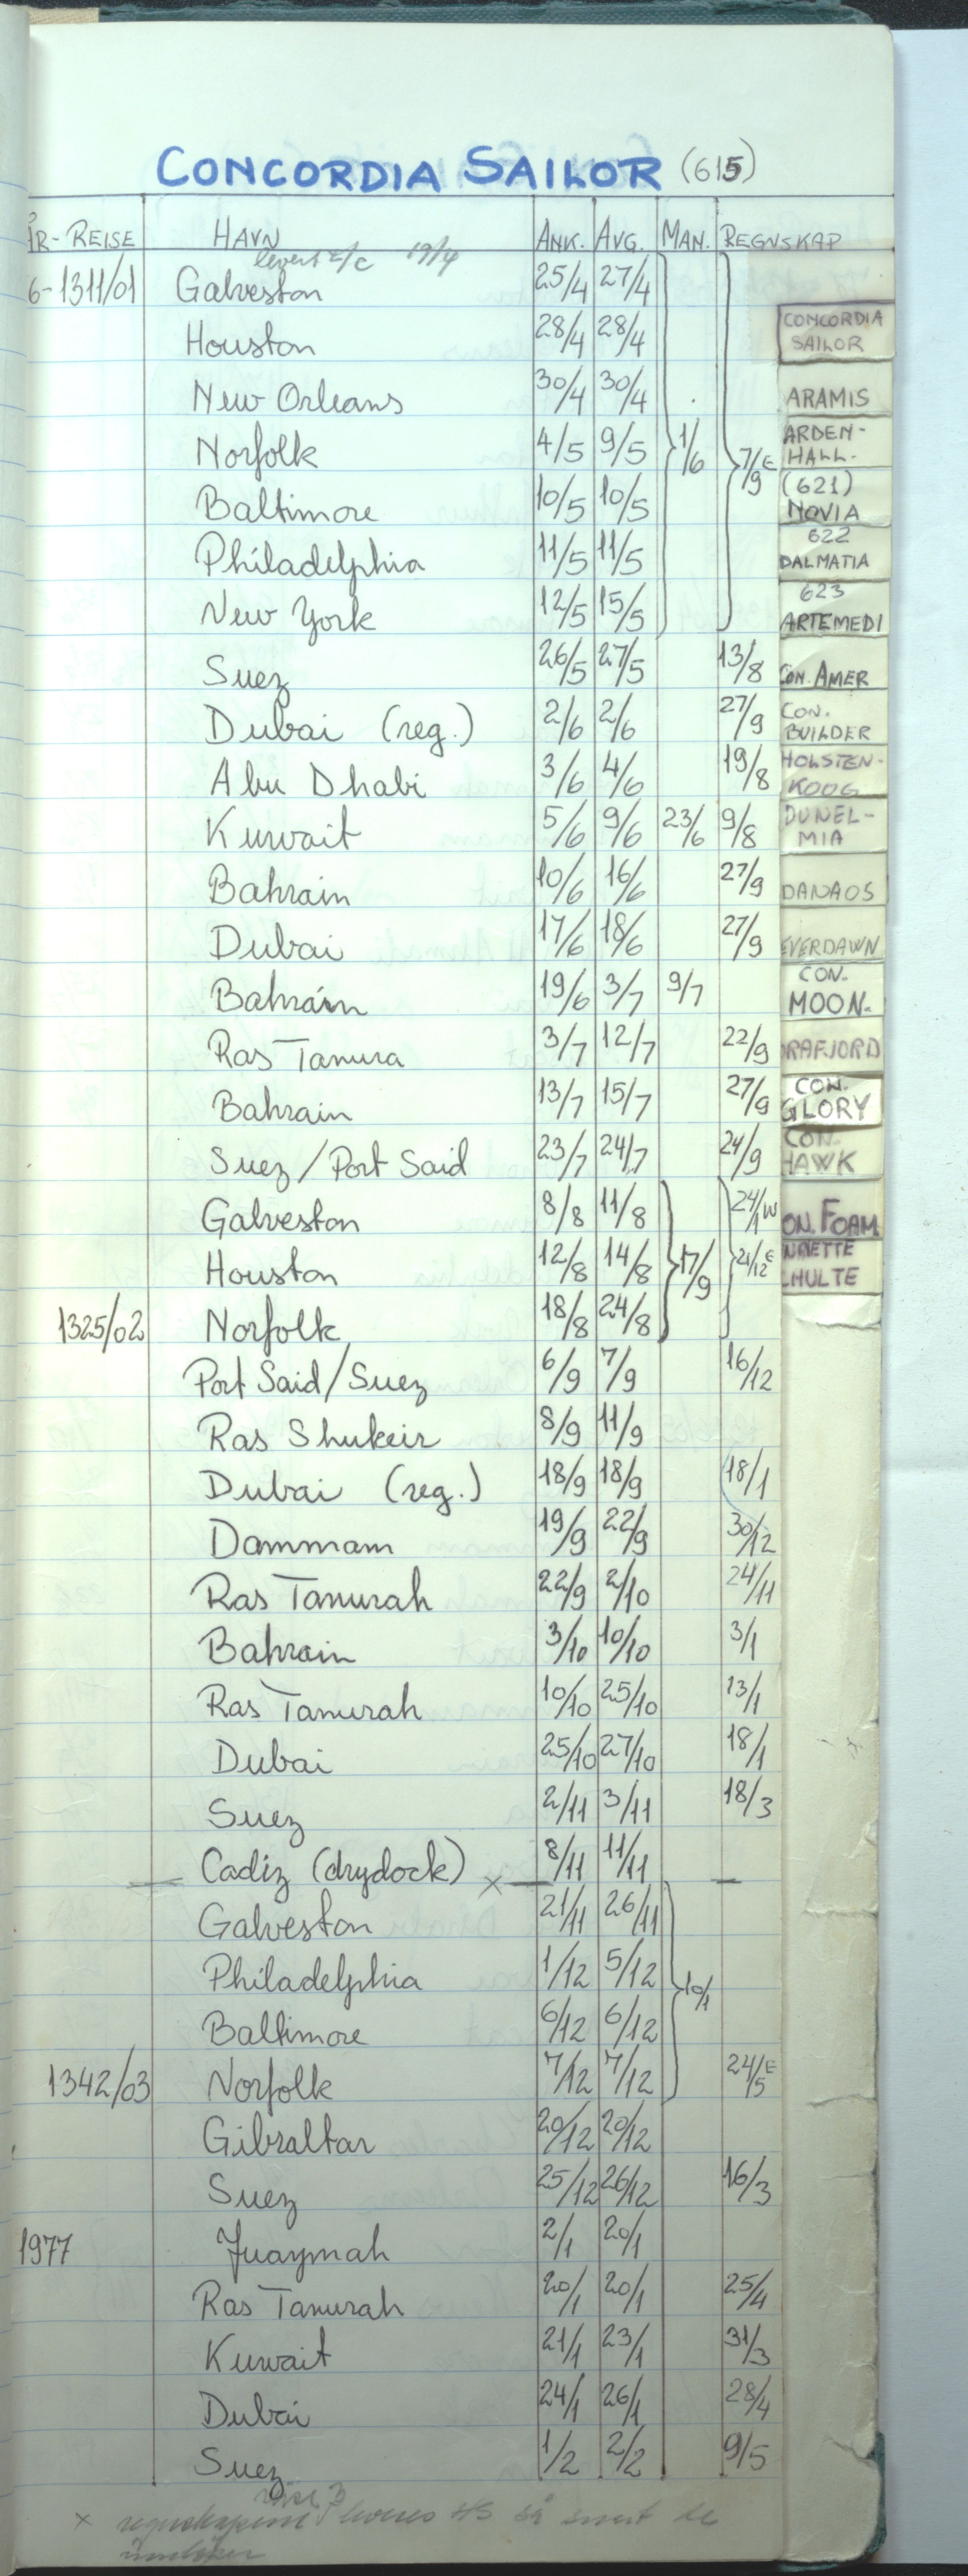 CONCORDIA SAILOR (615)
ÅR- REISE HAVN ANK. AVG. MAN. REGNSKAP
levert t/c 19/4
6-1311/01 Galveston 25/4 27/4
Houston 28/4 28/4
New Orleans 30/4 30/4
Norfolk 4/5 9/5 1/6 7/9 E
Baltimore 10/5 10/5
Philadelphia 11/5 11/5
New York 12/5 15/5
Suez 26/5 27/5 13/8
Dubai (reg.) 2/6 2/6 27/9
Abu Dhabi 3/6 4/6 19/8
Kuwait 5/6 9/6 23/6 9/8
Bahrain 10/6 16/6 27/9
Dubai 17/6 18/6 27/9
Bahrain 19/6 3/7 9/7
Ras Tanura 3/7 12/7 22/9
Bahrain 13/7 15/7 27/9
Suez/Port Said 23/7 24/7 24/9
Galveston 8/8 11/8 24/1 W
Houston 12/8 14/8 17/9 21/12 E
1325/02 Norfolk 18/8 24/8
Port Said/Suez 6/9 7/9 16/12
Ras Shukeir 8/9 11/9
Dubai (reg.) 18/9 18/9 18/1
Dammam 19/9 22/9 30/12
Ras Tanurah 22/9 2/10 24/11
Bahrain 3/10 10/10 3/1
Ras Tanurah 10/10 25/10 13/1
Dubai 25/10 27/10 18/1
Suez 2/11 3/11 18/3
Cadiz (drydock) x 8/11 11/11
Galveston 21/11 26/11
Philadelphia 1/12 5/12 10/1
Baltimore 6/12 6/12
1342/03 Norfolk 7/12 7/12 24/5 E
Gibraltar 20/12 20/12
Suez 25/12 26/12 16/3
1977 Juaymah 2/1 20/1
Ras Tanurah 20/1 20/1 25/4
Kuwait 21/1 23/1 31/3
Dubai 24/1 26/1 28/4
Suez 1/2 2/2 9/5
x
CONCORDIA
SAILOR
ARAMIS
ARDEN-
HALL.
(621)
NOVIA
622
DALMATIA
623
ARTEMEDI
CON. AMER
CON.
BUILDER
HOLSTEN-
KOOG
DUNEL-
MIA
DANAOS
EVERDAWN
CON.
MOON.
DRAFJORD
CON.
GLORY
CON.
HAWK
ON. FOAM
NNETTE
CHULTE